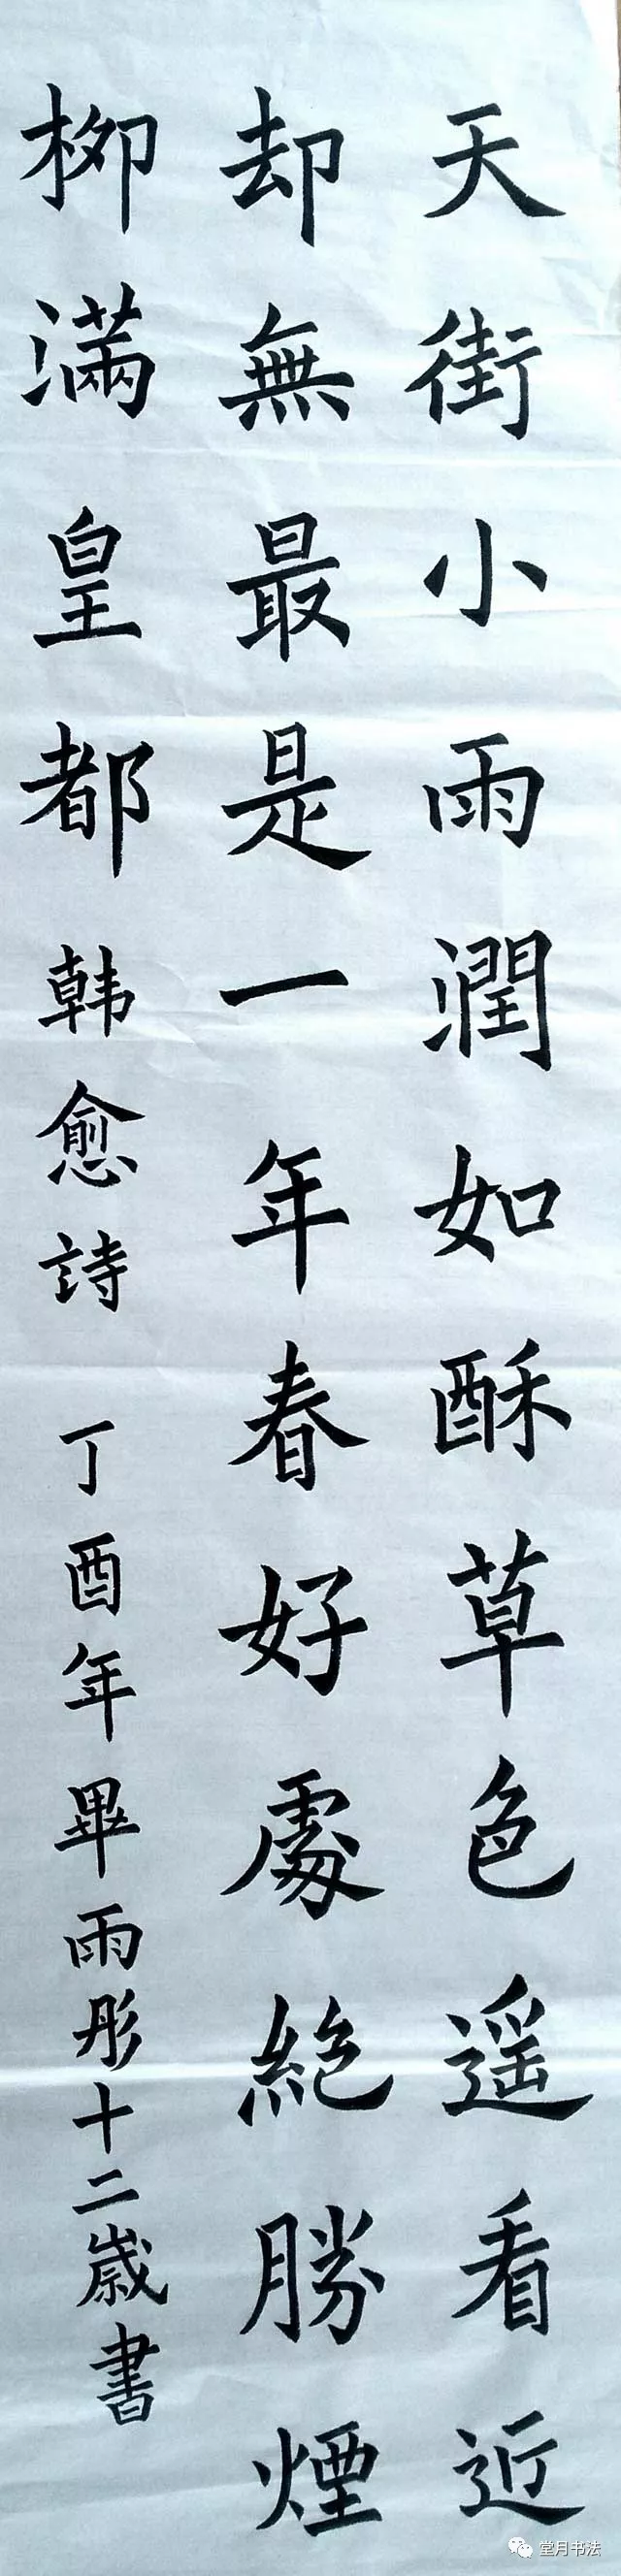 天街小雨潤如酥草色遥看近
却無最是一年春好處絶勝煙
柳滿皇都韩愈詩丁酉年畢雨彤十二歲書
堂月书法